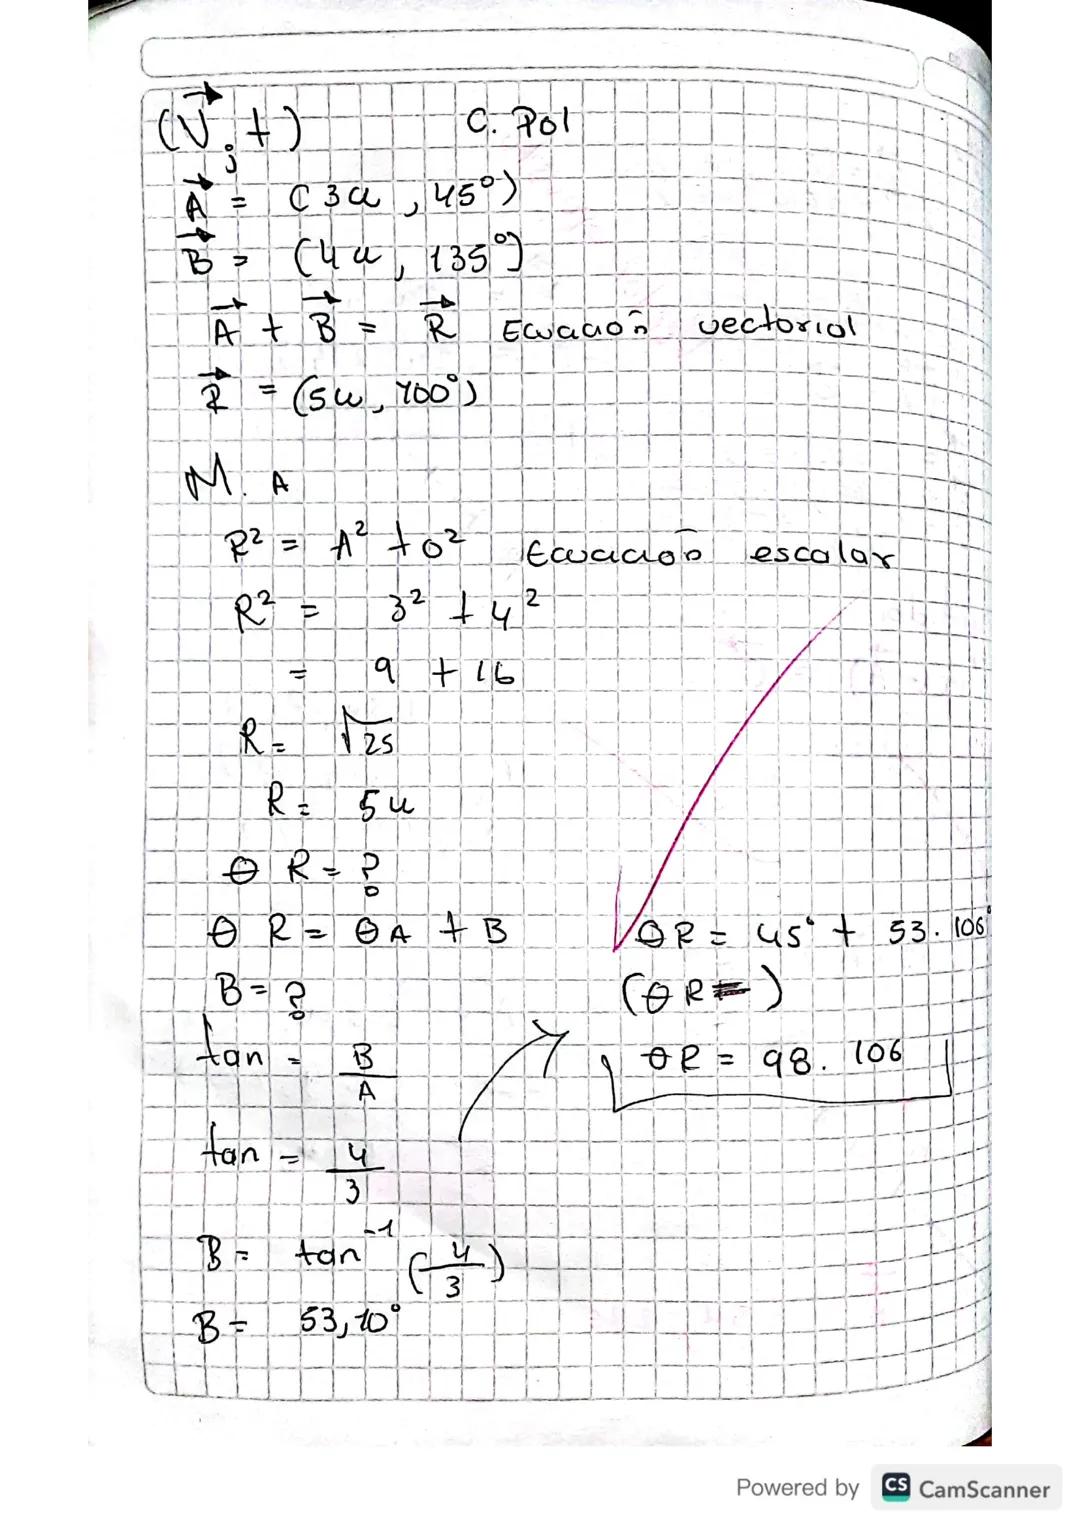 (V⃗, t)        C. Pol
A⃗ = (3u, 45°)
B⃗ = (4u, 135°)
A⃗ + B⃗ = R⃗  Ecuación vectorial
R⃗ = (5u, 100°)
M. A
R² = A² + b²  Ecuación escalar
R² = 3² + 4²
= 9 + 16
R = √25
R = 5u
θ R = ?
θ R = θ A + B
B = ?
tan = B/A
tan = 4/3
B = tan⁻¹ (4/3)
B = 53,10°
θ R = 45° + 53.106°
(θ R = )
θ R = 98.106
Powered by CS CamScanner